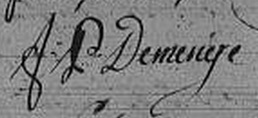 J. P. Demeniere